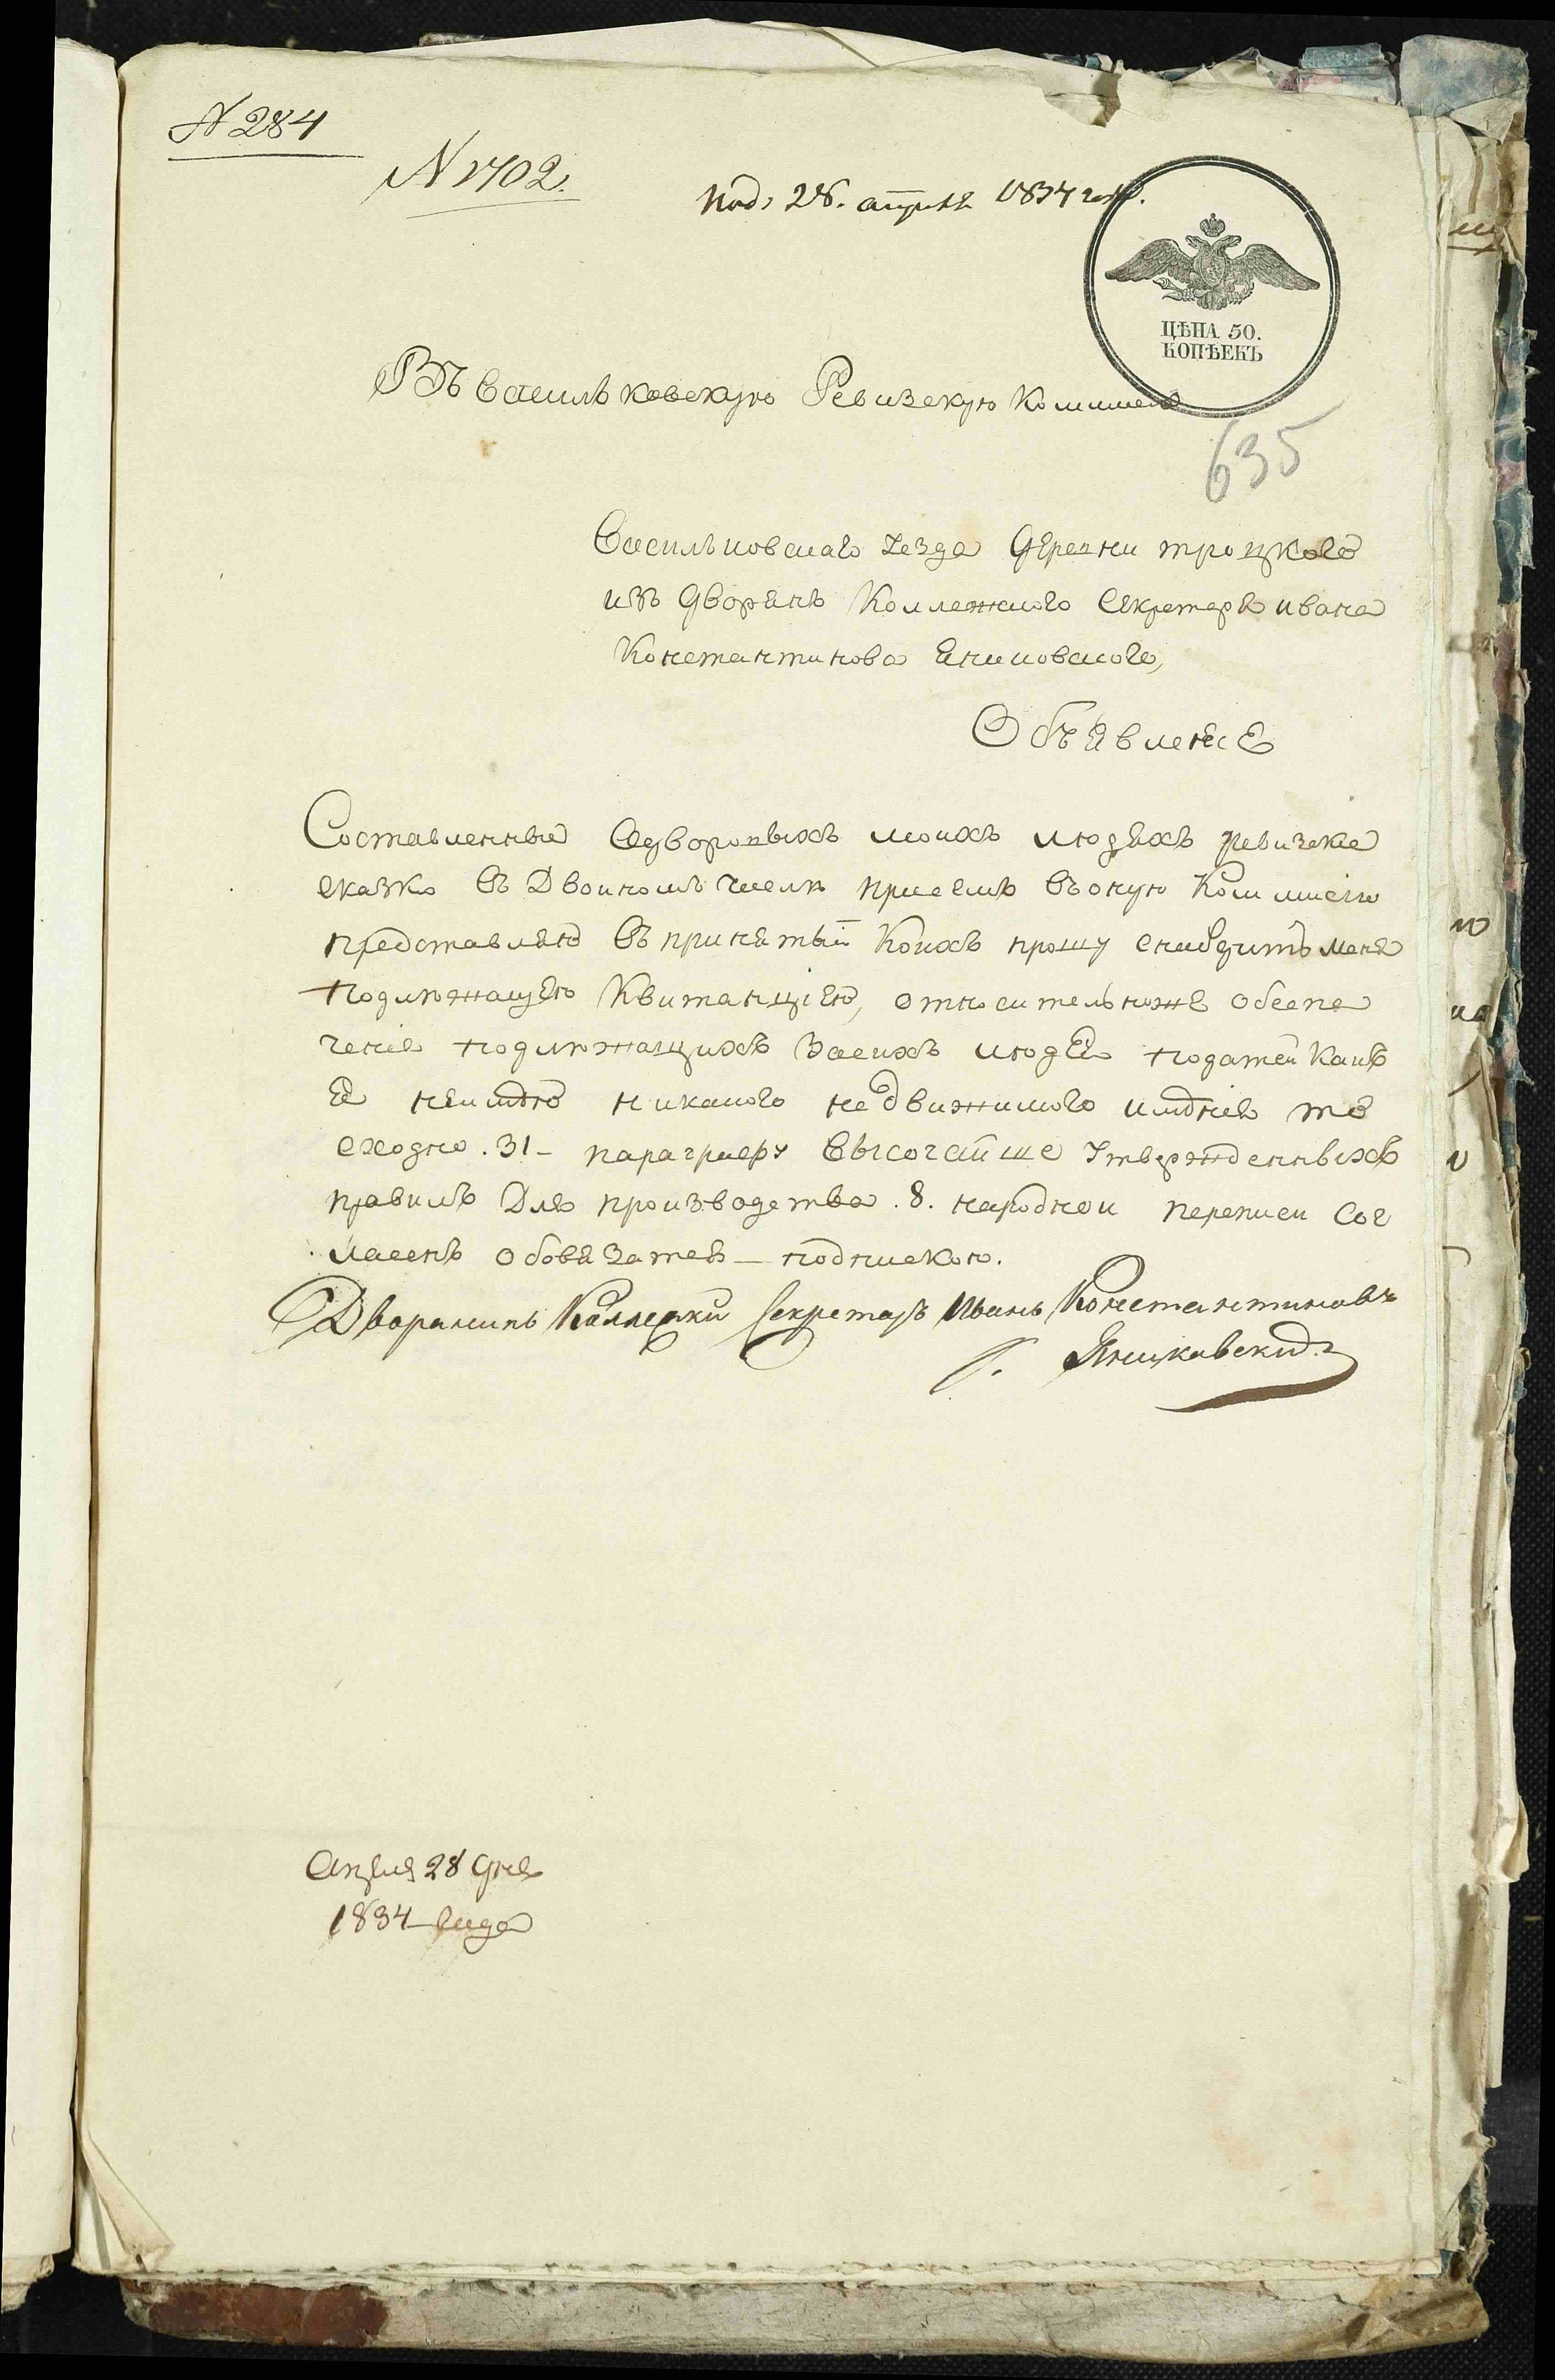 N 284
N 1702.
под: 28. апреля 1834 года.
ЦѢНА 50.
КОПѢЕКЪ
Въ Васильковскую Ревизскую Коммисію
635
Васильковскаго уезда Деревни троцкого
изъ Дворянъ Коллежского Секретаря ивана
Константинова Яницковского,
Объявленіе
Составленные Одворовыхъ моихъ людяхъ ревизскіе
сказки въ Двоиномъ числѣ присемъ въ оную Коммисію
представляю въ принятіи Коихъ прошу снабдитъ меня
подлѣжащею Квитанціею, относительноже обезпе
ченія подлѣжащихъ Засихъ людей податей Какъ
я неимѣю никакого недвижимого имѣнія то
сходно .31- параграфу Высочайше утвержденныхъ
правилъ Для производства .8. народной переписи Сог
ласенъ обовязатся — подпискою.
Дворянинъ Коллежкій Секретарь Иванъ Константиновъ
Яницковский
Апреля 28 дня
1834 года